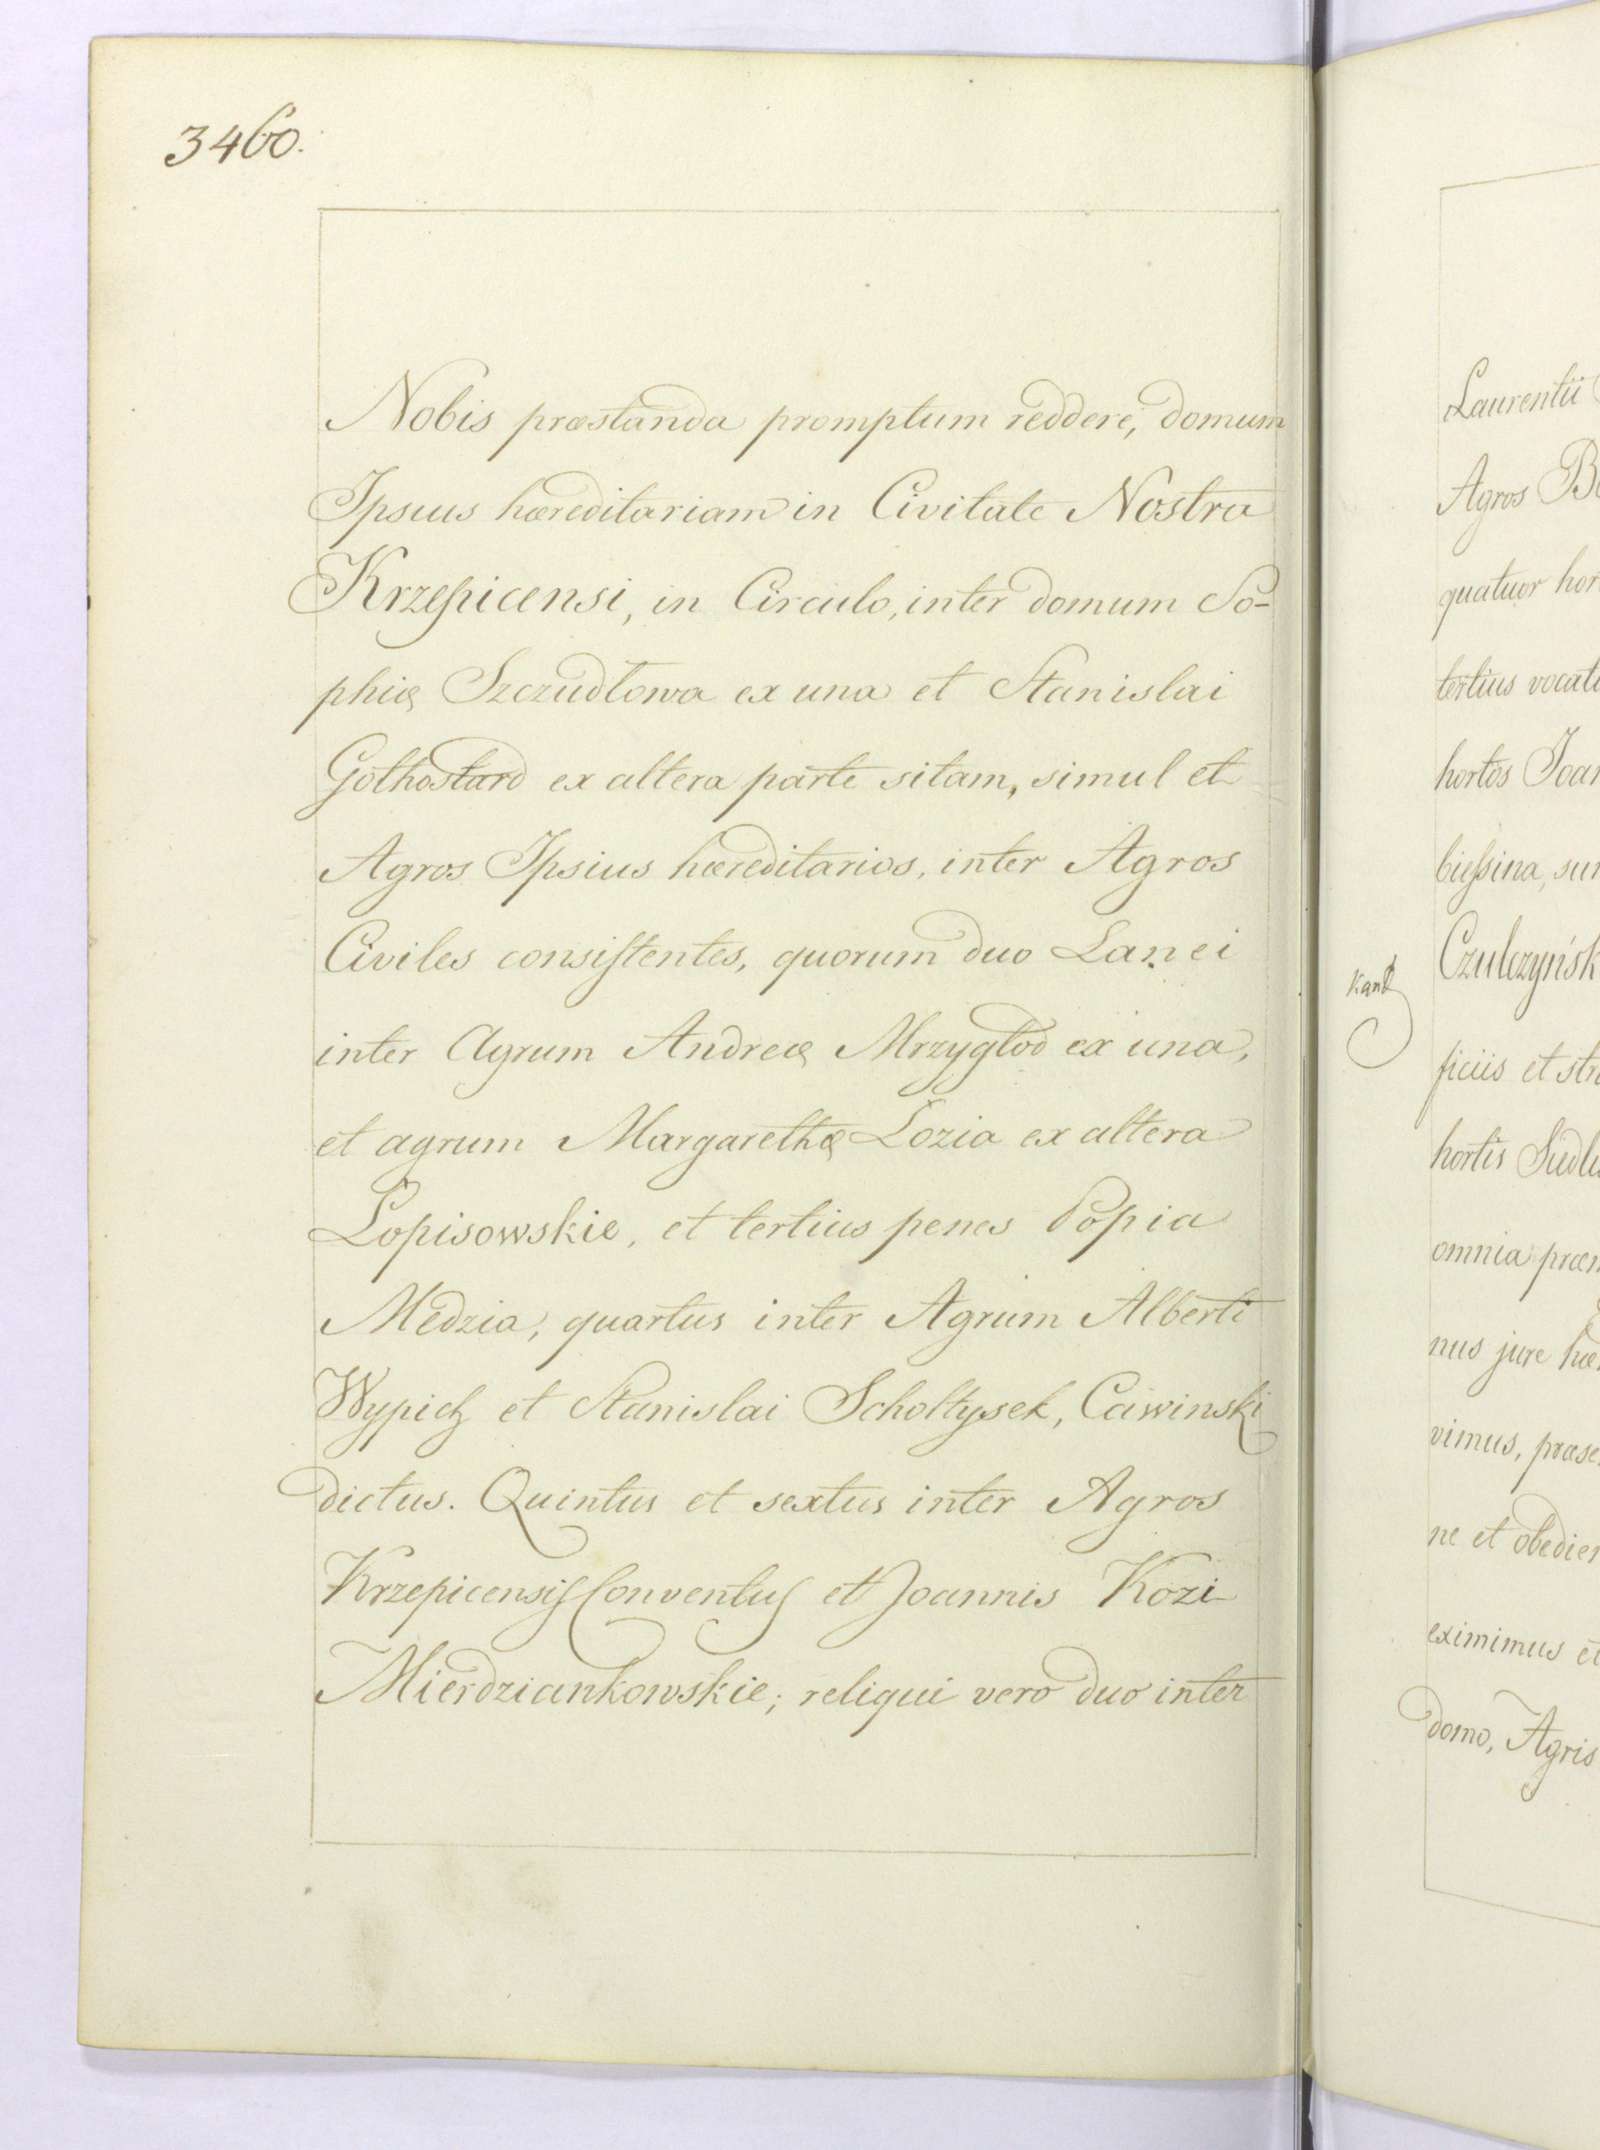 3460.
Nobis præstanda promptum reddere, domum
Ipsius hæreditariam in Civitate Nostra
Krzepicensi, in Circulo, inter domum So-
phiæ Szczudłowa ex una et Stanislai
Gothostard ex altera parte sitam, simul et
Agros Ipsius hæreditarios, inter Agros
Civiles consistentes, quorum duo Lanei
inter Agrum Andreæ Mrzygłod ex una,
et agrum Margarethæ Lozia ex altera
Lopisowskie, et tertius penes Popia
Medzia, quartus inter Agrum Alberti
Wypich et Stanislai Scholtysek, Cawinski
dictus. Quintus et sextus inter Agros
Krzepicensis Conventus et Joannis Kozi
Mierdziankowskie; reliqui vero duo inter
Laurentii
Agros
quatuor
tertius
hortos
Czulczyńsk
ficiis et
hortis
omnia
nus jure
vimus,
ne et
eximimus et
domo, Agris